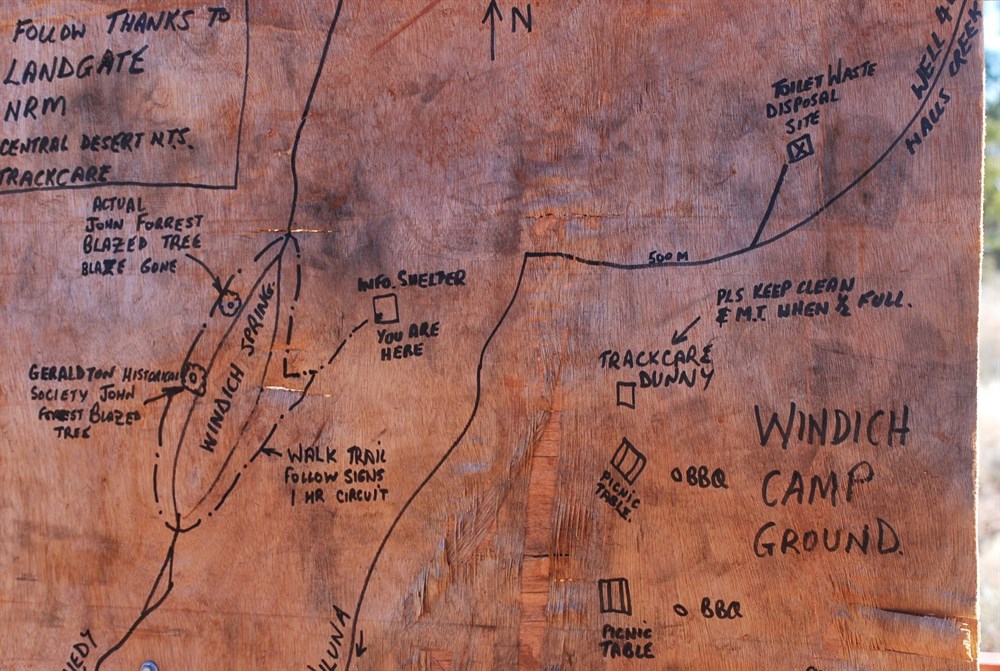 FOLLOW THANKS TO
LANDGATE
NRM
CENTRAL DESERT N.T.S.
TRACKCARE
N
TOILET WASTE
DISPOSAL
SITE
X
WELL 4
HALLS CREEK
ACTUAL
JOHN FORREST
BLAZED TREE
BLAZE GONE
500M
INFO. SHELTER
YOU ARE
HERE
PLS KEEP CLEAN
& M.T. WHEN ½ FULL.
WINDICH SPRING.
TRACKCARE
DUNNY
GERALDTON HISTORICAL
SOCIETY JOHN
FOREST BLAZED
TREE
WALK TRAIL
FOLLOW SIGNS
1 HR CIRCUIT
PICNIC
TABLE.
BBQ
WINDICH
CAMP
GROUND.
PICNIC
TABLE
BBQ
EDY
ILUNA